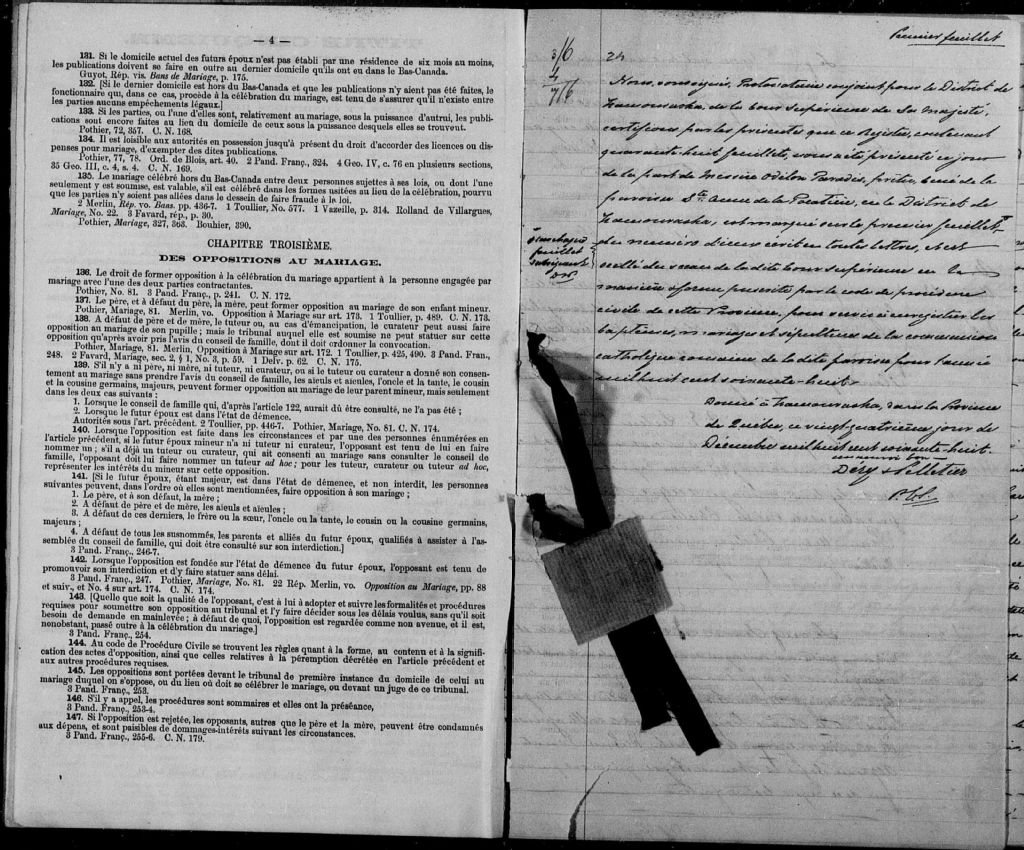 — 4 —
131. Si le domicile actuel des futurs époux n'est pas établi par une résidence de six mois au moins,
les publications doivent se faire en outre au dernier domicile qu'ils ont eu dans le Bas-Canada.
Guyot, Rép. vis. Bans de Mariage, p. 175.
132. [Si le dernier domicile est hors du Bas-Canada et que les publications n'y aient pas été faites, le
fonctionnaire qui, dans ce cas, procède à la célébration du mariage, est tenu de s'assurer qu'il n'existe entre
les parties aucuns empêchements légaux.]
133. Si les parties, ou l'une d'elles sont, relativement au mariage, sous la puissance d'autrui, les publi-
cations sont encore faites au lieu du domicile de ceux sous la puissance desquels elles se trouvent.
Pothier, 72, 357. C. N. 168.
134. Il est loisible aux autorités en possession jusqu'à présent du droit d'accorder des licences ou dis-
penses pour mariage, d'exempter des dites publications.
Pothier, 77, 78. Ord. de Blois, art. 40. 2 Pand. Franç., 324. 4 Geo. IV, c. 76 en plusieurs sections,
35 Geo. III, c. 4, s. 4. C. N. 169.
135. Le mariage célébré hors du Bas-Canada entre deux personnes sujettes à ses lois, ou dont l'une
seulement y est soumise, est valable, s'il est célébré dans les formes usitées au lieu de la célébration, pourvu
que les parties n'y soient pas allées dans le dessein de faire fraude à la loi.
2 Merlin, Rép. vo. Bans. pp. 436-7. 1 Toullier, No. 577. 1 Vazeille, p. 314. Rolland de Villargues,
Mariage, No. 22. 3 Favard, rép., p. 30.
Pothier, Mariage, 327, 363. Bouhier, 390.
CHAPITRE TROISIÈME.
DES OPPOSITIONS AU MARIAGE.
136. Le droit de former opposition à la célébration du mariage appartient à la personne engagée par
mariage avec l'une des deux parties contractantes.
Pothier, No. 81. 3 Pand. Franç., p. 241. C. N. 172.
137. Le père, et à défaut du père, la mère, peut former opposition au mariage de son enfant mineur.
Pothier, Mariage, 81. Merlin, vo. Opposition à Mariage sur art. 173. 1 Toullier, p. 489. C. N. 173.
138. A défaut de père et de mère, le tuteur ou, au cas d'émancipation, le curateur peut aussi faire
opposition au mariage de son pupille; mais le tribunal auquel elle est soumise ne peut statuer sur cette
opposition qu'après avoir pris l'avis du conseil de famille, dont il doit ordonner la convocation.
Pothier, Mariage, 81. Merlin, Opposition à Mariage sur art. 172. 1 Toullier, p. 425, 490. 3 Pand. Fran.,
248. 2 Favard, Mariage, sec. 2, § 1, No. 3, p. 59. 1 Delv. p. 62. C. N. 175.
139. S'il n'y a ni père, ni mère, ni tuteur, ni curateur, ou si le tuteur ou curateur a donné son consen-
tement au mariage sans prendre l'avis du conseil de famille, les aïeuls et aïeules, l'oncle et la tante, le cousin
et la cousine germains, majeurs, peuvent former opposition au mariage de leur parent mineur, mais seulement
dans les deux cas suivants :
1. Lorsque le conseil de famille qui, d'après l'article 122, aurait dû être consulté, ne l'a pas été ;
2. Lorsque le futur époux est dans l'état de démence.
Autorités sous l'art. précédent. 2 Toullier, pp. 446-7. Pothier, Mariage, No. 81. C. N. 174.
140. Lorsque l'opposition est faite dans les circonstances et par une des personnes énumérées en
l'article précédent, si le futur époux mineur n'a ni tuteur ni curateur, l'opposant est tenu de lui en faire
nommer un ; s'il a déjà un tuteur ou curateur, qui ait consenti au mariage sans consulter le conseil de
famille, l'opposant doit lui faire nommer un tuteur ad hoc ; pour les tuteur, curateur ou tuteur ad hoc,
représenter les intérêts du mineur sur cette opposition.
141. [Si le futur époux, étant majeur, est dans l'état de démence, et non interdit, les personnes
suivantes peuvent, dans l'ordre où elles sont mentionnées, faire opposition à son mariage ;
1. Le père, et à son défaut, la mère ;
2. A défaut de père et de mère, les aïeuls et aïeules ;
3. A défaut de ces derniers, le frère ou la sœur, l'oncle ou la tante, le cousin ou la cousine germains,
majeurs ;
4. A défaut de tous les susnommés, les parents et alliés du futur époux, qualifiés à assister à l'as-
semblée du conseil de famille, qui doit être consulté sur son interdiction.]
3 Pand. Franç., 246-7.
142. Lorsque l'opposition est fondée sur l'état de démence du futur époux, l'opposant est tenu de
promouvoir son interdiction et d'y faire statuer sans délai.
3 Pand. Franç., 247. Pothier, Mariage, No. 81. 22 Rép. Merlin, vo. Opposition au Mariage, pp. 88
et suiv., et No. 4 sur art. 174. C. N. 174.
143. [Quelque soit la qualité de l'opposant, c'est à lui à adopter et suivre les formalités et procédures
requises pour soumettre son opposition au tribunal et l'y faire décider sous les délais voulus, sans qu'il soit
besoin de demande en mainlevée ; à défaut de quoi, l'opposition est regardée comme non avenue, et il est,
nonobstant, passé outre à la célébration du mariage.]
3 Pand. Franç., 254.
144. Au code de Procédure Civile se trouvent les règles quant à la forme, au contenu et à la signifi-
cation des actes d'opposition, ainsi que celles relatives à la péremption décrétée en l'article précédent et
aux autres procédures requises.
145. Les oppositions sont portées devant le tribunal de première instance du domicile de celui au
mariage duquel on s'oppose, ou du lieu où doit se célébrer le mariage, ou devant un juge de ce tribunal.
3 Pand. Franç., 253.
146. S'il y a appel, les procédures sont sommaires et elles ont la préséance,
3 Pand. Franç., 253-4.
147. Si l'opposition est rejetée, les opposants, autres que le père et la mère, peuvent être condamnés
aux dépens, et sont passibles de dommages-intérêts suivant les circonstances.
3 Pand. Franç., 255-6. C. N. 179.
Premier feuillet
3/6
4
7/6
Nous, soussigné, Protonotaire conjoint pour le District de
Kamouraska, de la Cour Supérieure de Sa Majesté,
certifions par les présentes que ce Registre, contenant
quarante-huit feuillets, nous a été présenté ce jour
de la part de Messire Odilon Paradis, prêtre, curé de la
paroisse Ste. Anne de la Pocatière, en le District de
Kamouraska; est marqué sur le premier feuillet
et sur chaque
feuillet
subséquent
du numéro d'icelui écrit en toutes lettres, et est
scellé du sceau de la dite Cour Supérieure en la
manière et forme prescrite par le code de procédure
civile de cette Province, pour servir à enregistrer les
baptêmes, mariages et sépultures de la communion
catholique romaine de la dite paroisse pour l'année
mil huit cent soixante-huit.
Donné à Kamouraska, dans la Province
de Québec, ce vingt-quatrième jour de
Décembre mil huit cent soixante-huit.
Dery & Pelletier